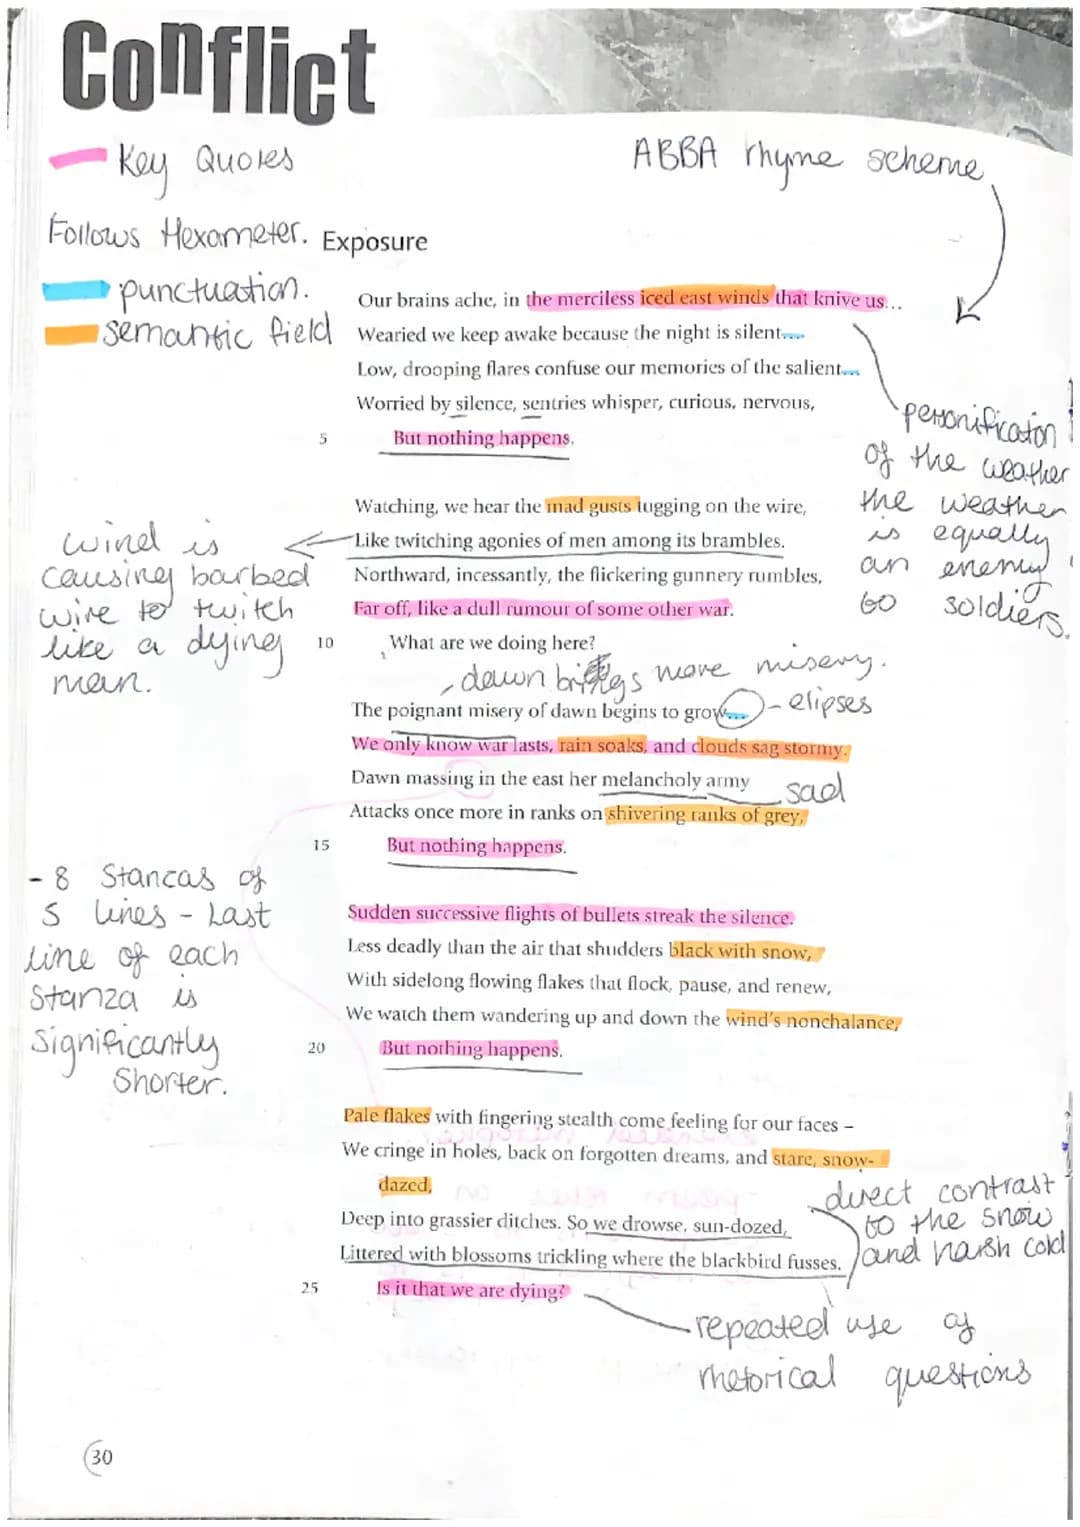 Conflict
Key Quotes
ABBA rhyme scheme
Follows Hexameter.
Exposure
punctuation.
semantic field
Our brains ache, in the merciless iced east winds that knive us...
Wearied we keep awake because the night is silent...
Low, drooping flares confuse our memories of the salient...
Worried by silence, sentries whisper, curious, nervous,
5 But nothing happens.
personificaton
of the weather
the weather
is equally
an enemy
to soldiers.
Watching, we hear the mad gusts tugging on the wire,
Like twitching agonies of men among its brambles.
Northward, incessantly, the flickering gunnery rumbles,
Far off, like a dull rumour of some other war.
10 What are we doing here?
wind is
causing barbed
wire to twitch
like a dying
man.
dawn brings more misery.
The poignant misery of dawn begins to grow...
- elipses
We only know war lasts, rain soaks, and clouds sag stormy.
Dawn massing in the east her melancholy army
sad
Attacks once more in ranks on shivering ranks of grey,
15 But nothing happens.
- 8 Stancas of
5 lines - Last
line of each
Stanza is
significantly
Shorter.
Sudden successive flights of bullets streak the silence.
Less deadly than the air that shudders black with snow,
With sidelong flowing flakes that flock, pause, and renew,
We watch them wandering up and down the wind's nonchalance,
20 But nothing happens.
Pale flakes with fingering stealth come feeling for our faces –
We cringe in holes, back on forgotten dreams, and stare, snow-
dazed,
Deep into grassier ditches. So we drowse, sun-dozed,
Littered with blossoms trickling where the blackbird fusses.
25 Is it that we are dying?
direct contrast
to the snow
and harsh cold
repeated use of
rhetorical questions
30